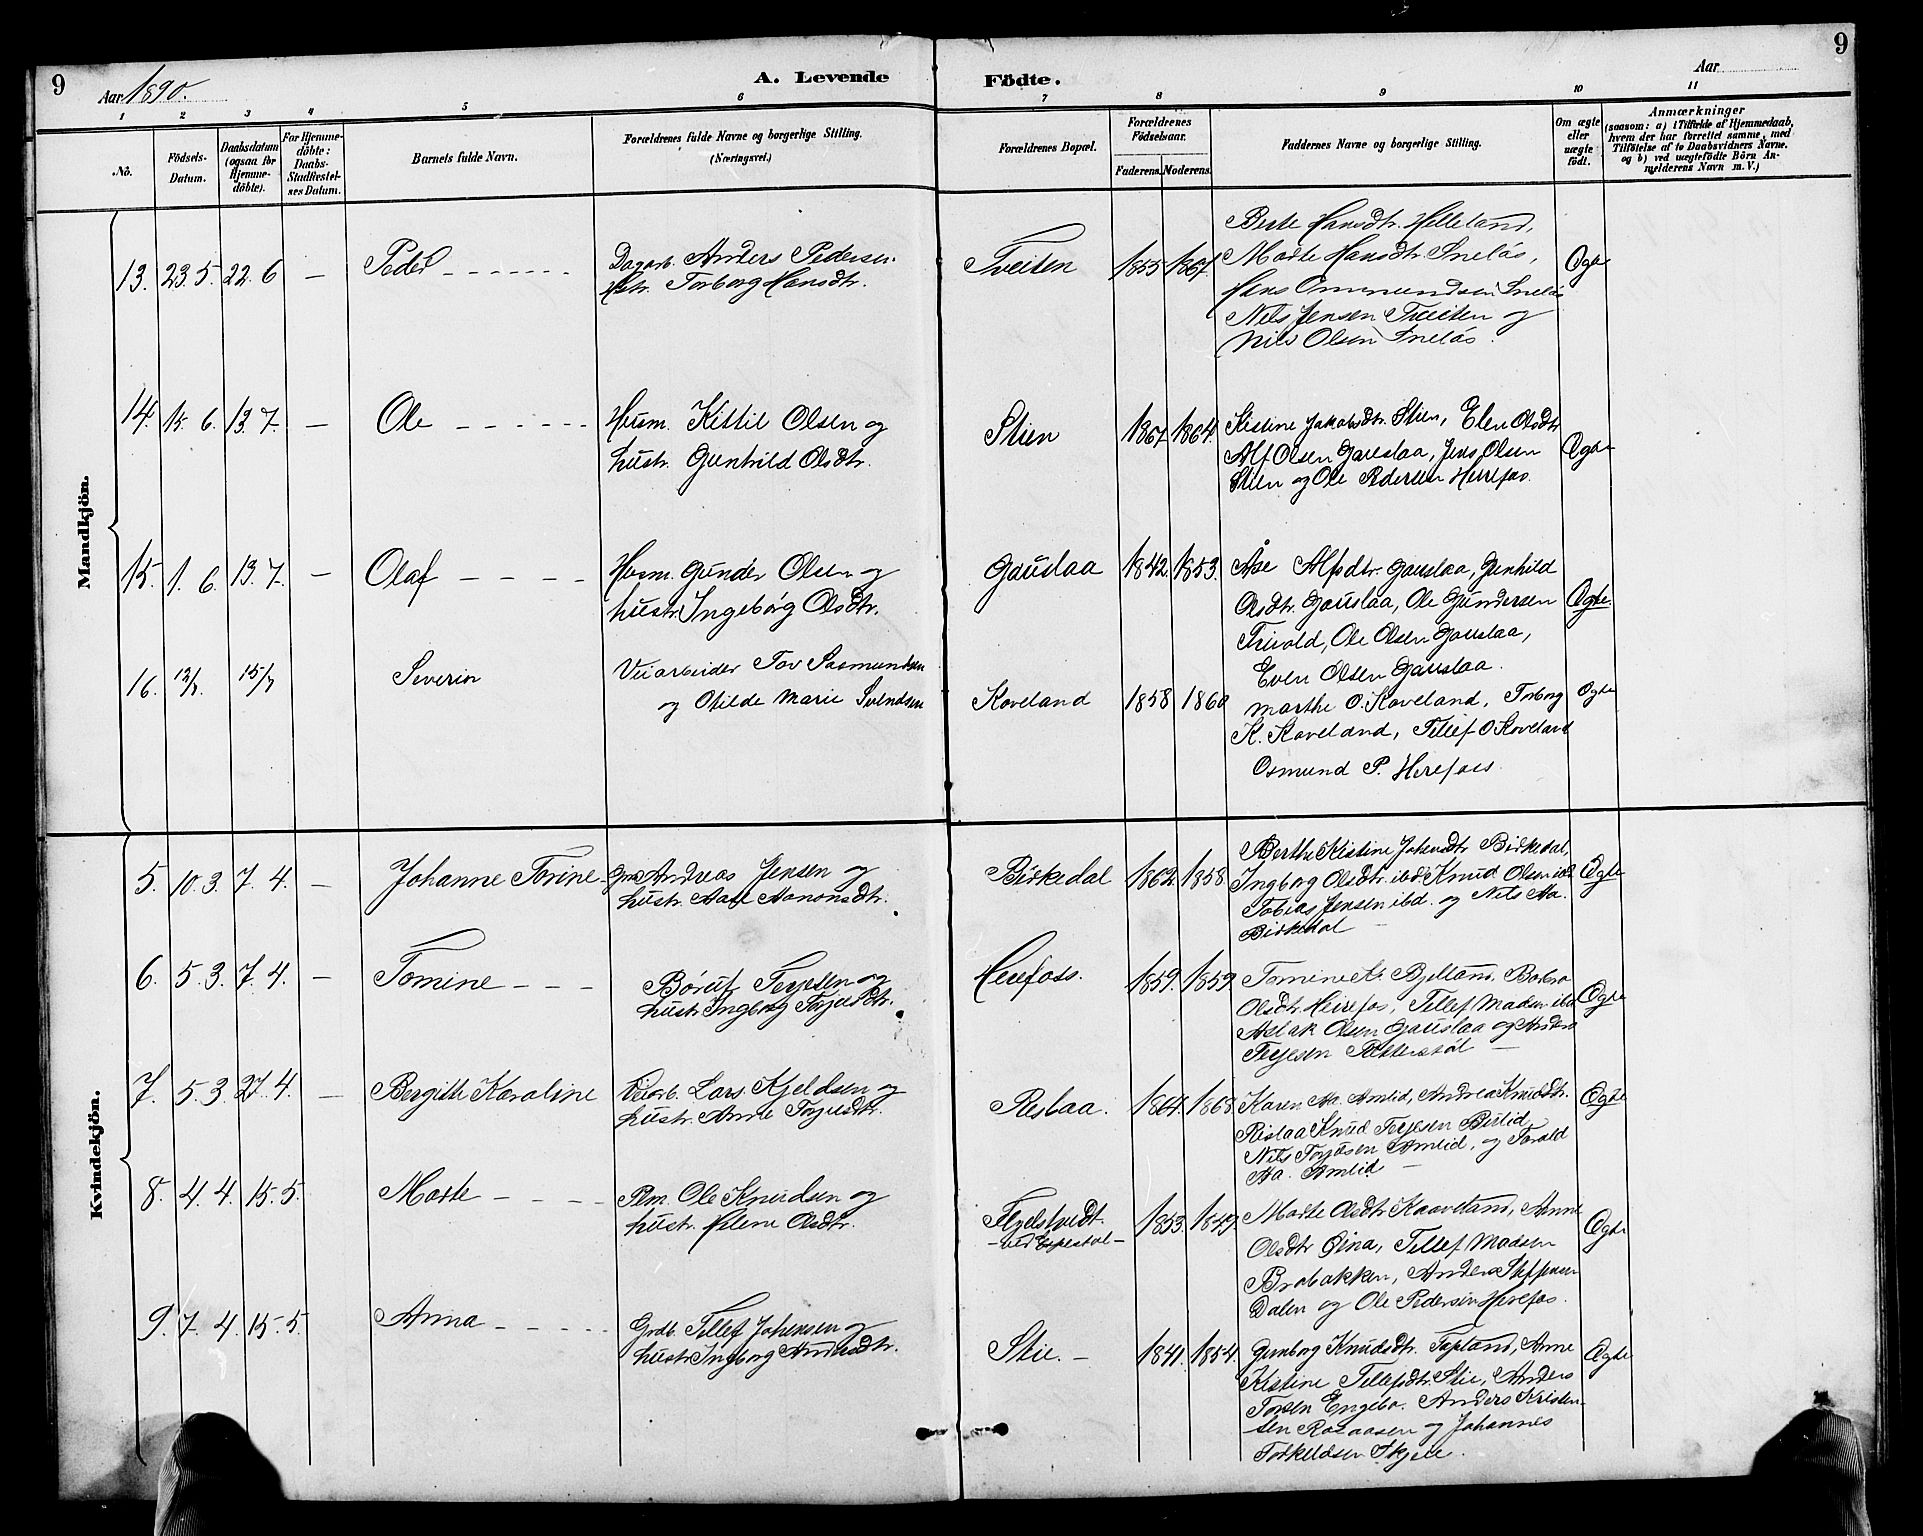 9
Aar 1890.
A. Levende Födte.
Aar
9
1 2 3 4 5 6 7 8 9 10 11
No.
Födsels-Datum.
Daabsdatum (ogsaa for Hjemme-döbte).
For Hjemme-döbte: Daabs-Stadfæstel-ses Datum.
Barnets fulde Navn.
Forældrenes fulde Navne og borgerlige Stilling.
(Næringsvei.)
Forældrenes Bopæl.
Forældrenes Födselsaar.
Faderens. Moderens.
Faddernes Navne og borgerlige Stilling.
Om ægte eller uægte födt.
Anmærkninger
(saasom: a) i Tilfælde af Hjemmedaab,
hvem der har forrettet samme, med
Tilföielse af to Daabsvidners Navne.
og b) ved uægtefödte Börn An-
melderens Navn m. V.)
Mandkjön.
13. 23. 5. 22. 6 — Peder Dagarb. Anders Pedersen Tveiten 1855 1867. Ægte
Hstr. Torborg Hansdtr.
Berte Hansdtr. Helleland,
Marte Hansdtr. Sneløs,
Hans Ommundsen Sneløs
Nils Jensen Tveiten og
Nils Olsen Sneløs.
14. 15. 6. 13. 7. — Ole Husm. Kittil Olsen og Stien 1867. 1864. Ægte
hustr. Gunhild Olsdtr.
Kistine Jakobsdtr. Stien, Elen Olsdtr
Alf Olsen Gauslaa, Jens Olsen
Stien og Ole Pedersen Herefos.
15. 1. 6. 13. 7. — Olaf Husm. Gunder Olsen og Gauslaa 1842. 1853. Ægte.
hustr. Ingeborg Olsdtr.
Åse Alfsdtr. Gauslaa, Gunhild
Olsdtr. Gauslaa, Ole Gundersen
Trivold, Ole Olsen Gauslaa,
Even Olsen Gauslaa.
16. 12/7 15/7 Severin Veiarbeider Tov Sasmundsen Koveland 1858 1860 Ægte
og Otilde Marie Svendsen
Marthe O. Koveland, Torborg
K. Koveland, Tellef O. Koveland
Osmund P. Herefoss.
Kvindekjön.
5. 10. 3. 7. 4. — Johanne Torine Andreas Jensen og Birkedal 1862. 1858. Ægte
hustr. Aase Aanonsdtr.
Berthe Kistine Johensdtr Birkedal,
Ingborg Olsdtr. ibd. Knud Olsen ibd.
Tobias Jensen ibd. og Nils Aa.
Birkedal
6. 5. 3. 7. 4. — Tomine Børuf Terjesen og Herefoss. 1859. 1859. Ægte
hustr. Ingborg Torjusdtr.
Tomine A. Bjelland,
Olsdtr. Herefos, Tellef Madsen ibd.
Aslak Olsen Gauslaa og Anders
Terjesen
7. 5. 3. 27. 4. — Bergith Karoline Veiarb. Lars Kjeldsen og Reslaa. 1864. 1868. Ægte
hustr. Anne Torjusdtr.
Karen Aa. Amlid, Andrea Knudsdtr.
Rislaa Knud Terjesen Birlid,
Nils Torjusen Amlid, og Torald
Aa. Amlid
8. 4. 4. 15. 5. Marte Plm. Ole Knudsen og Fjelstvedt 1853. 1849. Ægte
hustr. Helene Olsdtr. — ved Espestøl —
Marte Olsdtr Kaaveland, Anne
Olsdtr Øina, Tellef Madsen
Brobakken, Anders Steffensen
Dalen og Ole Pedersen Herefos.
9. 7. 4. 15. 5. Anna Grdb. Tellef Johensen og Stie. — 1841. 1854. Ægte
hustr. Ingborg Andersdtr.
Gunborg Knudsdtr. Topland, Anne
Kistine Tellefsdtr. Stie, Anders
Torsen Engebo. Anders Kristen-
sen Rosaasen og Johannes
Torkeldsen